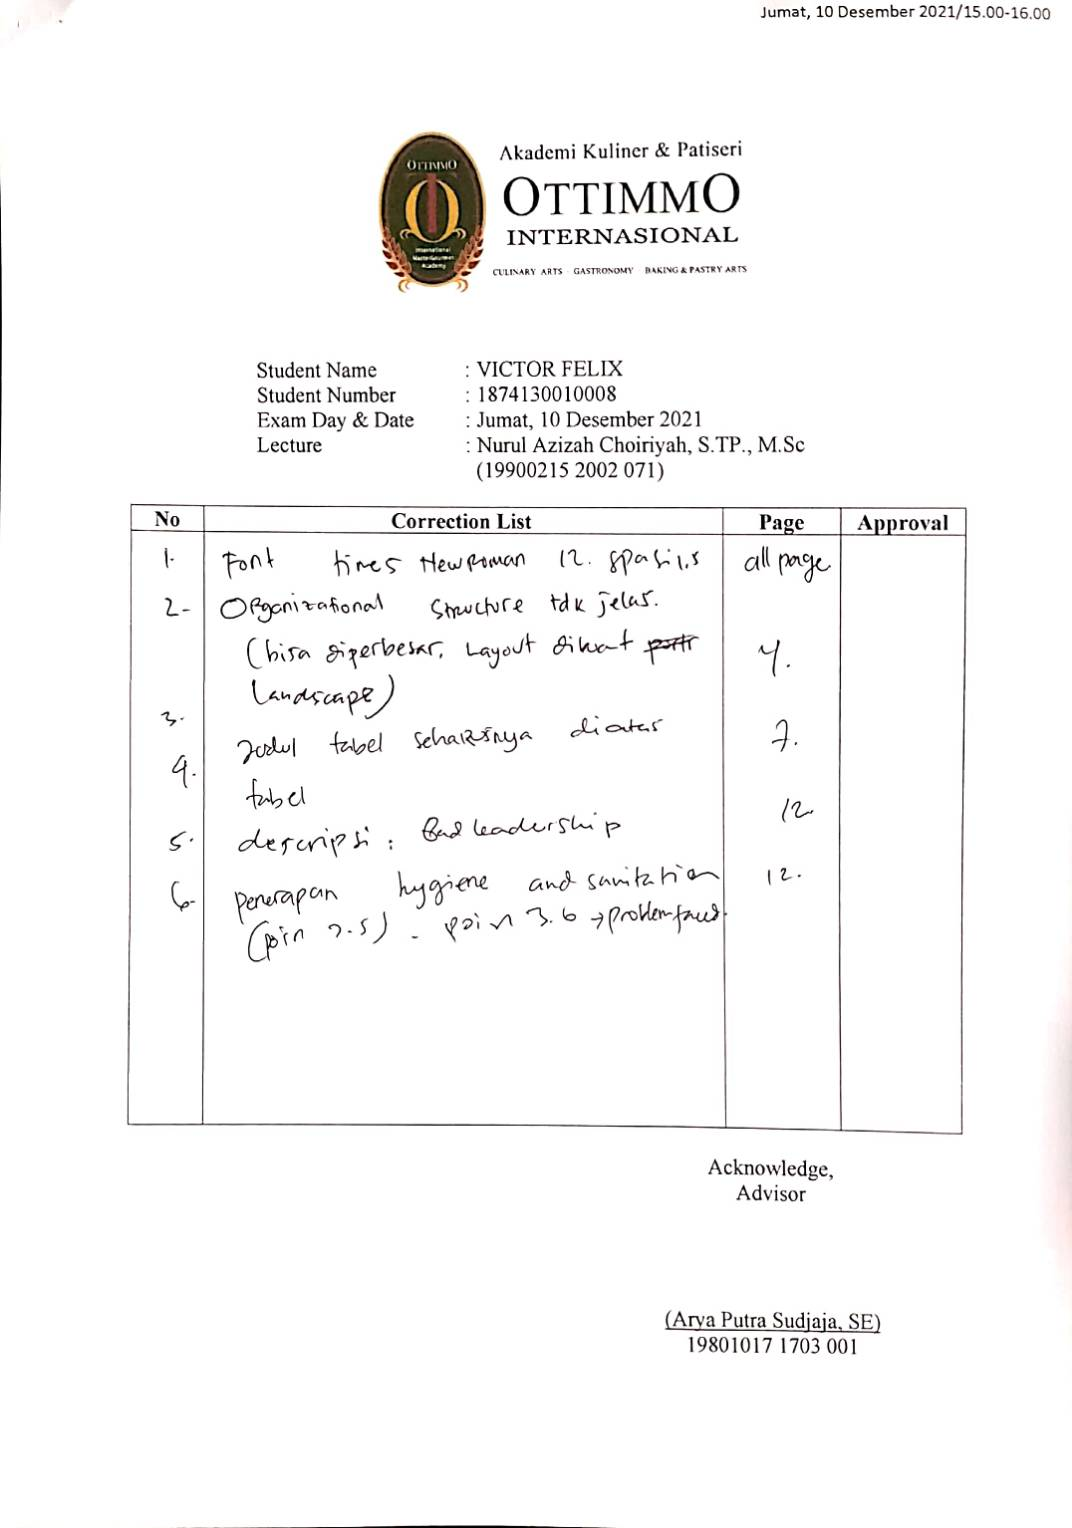 Jumat, 10 Desember 2021/15.00-16.00
OTTIMMO
International
MasterGourmet
Academy
Akademi Kuliner & Patiseri
OTTIMMO
INTERNASIONAL
CULINARY ARTS · GASTRONOMY · BAKING & PASTRY ARTS
Student Name : VICTOR FELIX
Student Number : 1874130010008
Exam Day & Date : Jumat, 10 Desember 2021
Lecture : Nurul Azizah Choiriyah, S.TP., M.Sc
(19900215 2002 071)
No Correction List Page Approval
1. Font times New Roman 12. spasi 1,5 all page
2- Organizational Structure tdk jelas.
(bisa diperbesar, Layout dibuat 4.
Landscape)
3.
Judul tabel seharusnya diatas 7.
4.
tabel
12.
5. descripsi : Bad leadership
6- penerapan hygiene and sanitation 12.
(poin 2.5) - poin 3.6 → problem faced.
Acknowledge,
Advisor
(Arya Putra Sudjaja, SE)
19801017 1703 001